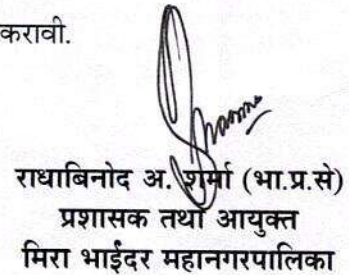 करावी.
राधाबिनोद अ. शर्मा (भा.प्र.से)
प्रशासक तथा आयुक्त
मिरा भाईंदर महानगरपालिका